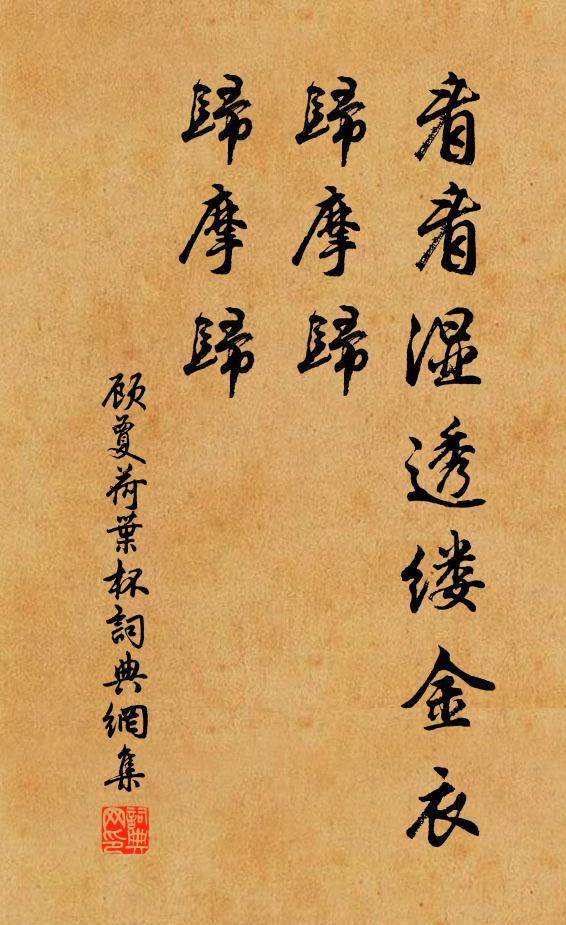 看看湿透缕金衣
歸摩歸
歸摩歸
顾夐荷葉杯詞典網集
詞典网印